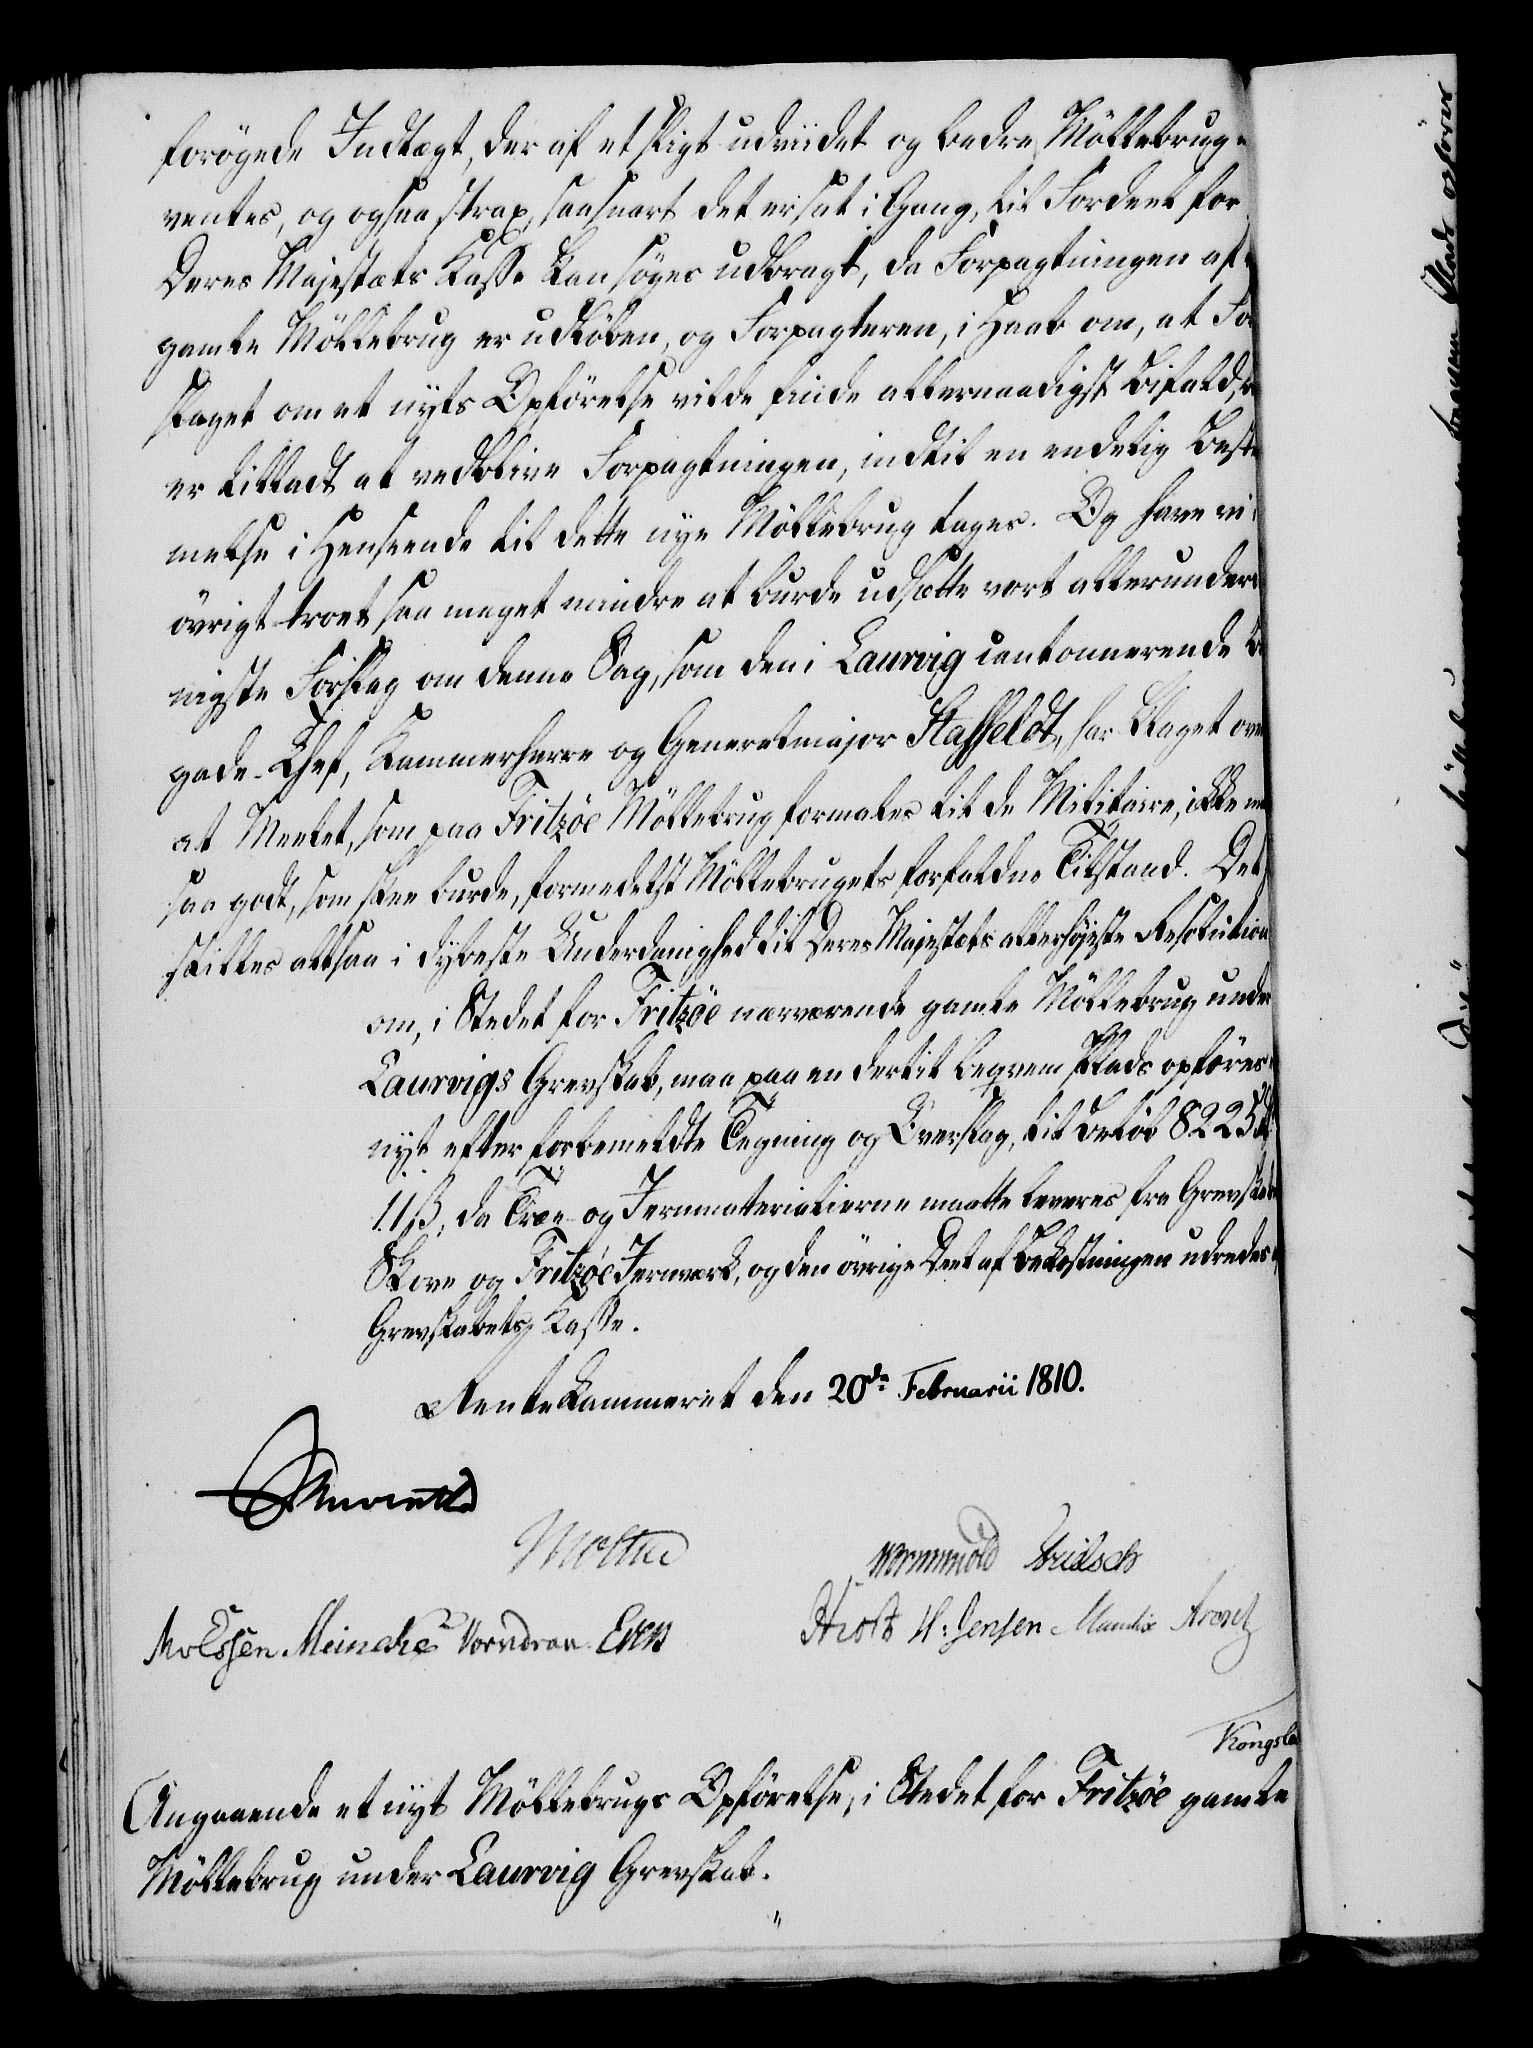 forøgede Indtægt, der af et sligt udviidet og bedre Møllebrug
ventes, og ogsaa strax, saasnart det er sat i Gang, til Fordeel for
Deres Majestæts Kasse kan søges udbragt, da Forpagtningen af
gamle Møllebrug er udløben, og Forpagteren, i Haab om, at For
slaget om et nyts Opførelse vilde finde allernaadigst Bifald,
er tilladt at vedblive Forpagtningen, indtil en endelig Beste
melse i Henseende til dette nye Møllebrug tages. Og have vi i
øvrigt troet saa meget mindre at burde udsætte vort allerunderd
nigste Forslag om denne Sag, som den i Laurvig cantonnerende Bri
gade-Chef, Kammerherre og Generalmajor Staffeldt, har klaget over
at Meelet, som paa Fritzöe Møllebrug formales til de Militaire, ikke
saa godt, som skee burde, formedelst Møllebrugets forfaldne Tilstand. Det
stilles altsaa i dybeste Underdanighed til Deres Majestæts allerhøjeste Resolution
om, i Stedet for Fritzöe nærværende gamle Møllebrug under
Laurvigs Grevskab, maa paa en dertil beqvem Plads opføres
nyt efter forbemeldte Tegning og Overslag, til Beløb 8225 Rd
11 ß, da Træe- og Jernmatterialierne maatte leveres fra Grevskabets
Skove og Fritzöe Jernværk, og den øvrige Deel af Bekostningen udredes
Grevskabets Kasse.
Rentekammeret den 20de Februarii 1810.
Moltke
Wormskiold Fridsch
MvEssen. Meincke Vorndran. Evers
Holst H: Jensen. Mandix Arntz
Kongsl
Angaaende et nyt Møllebrugs Opførelse, i Stedet for Fritzöe gamle
Møllebrug under Laurvig Grevskab.